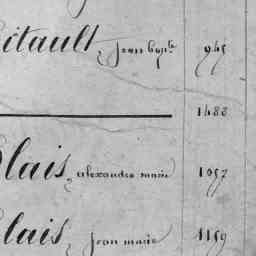 itault, jean bapte 945
1488
lais, alexandre marie 1057
lais, jean marie 1159